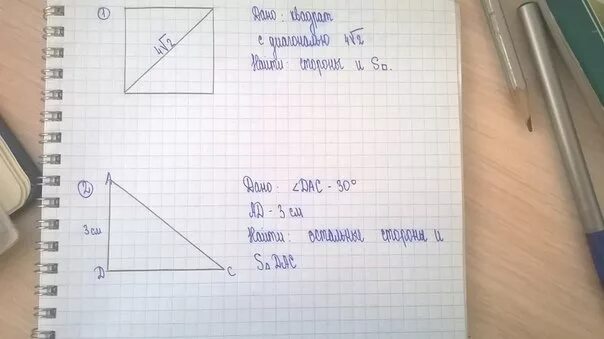 1
4√2
Дано: квадрат
с диагональю 4√2
Найти: стороны и S□.
2
A
3 см
D
C
Дано: ∠DAC - 30°
AD - 3 см
Найти: остальны стороны и
S△ DAC